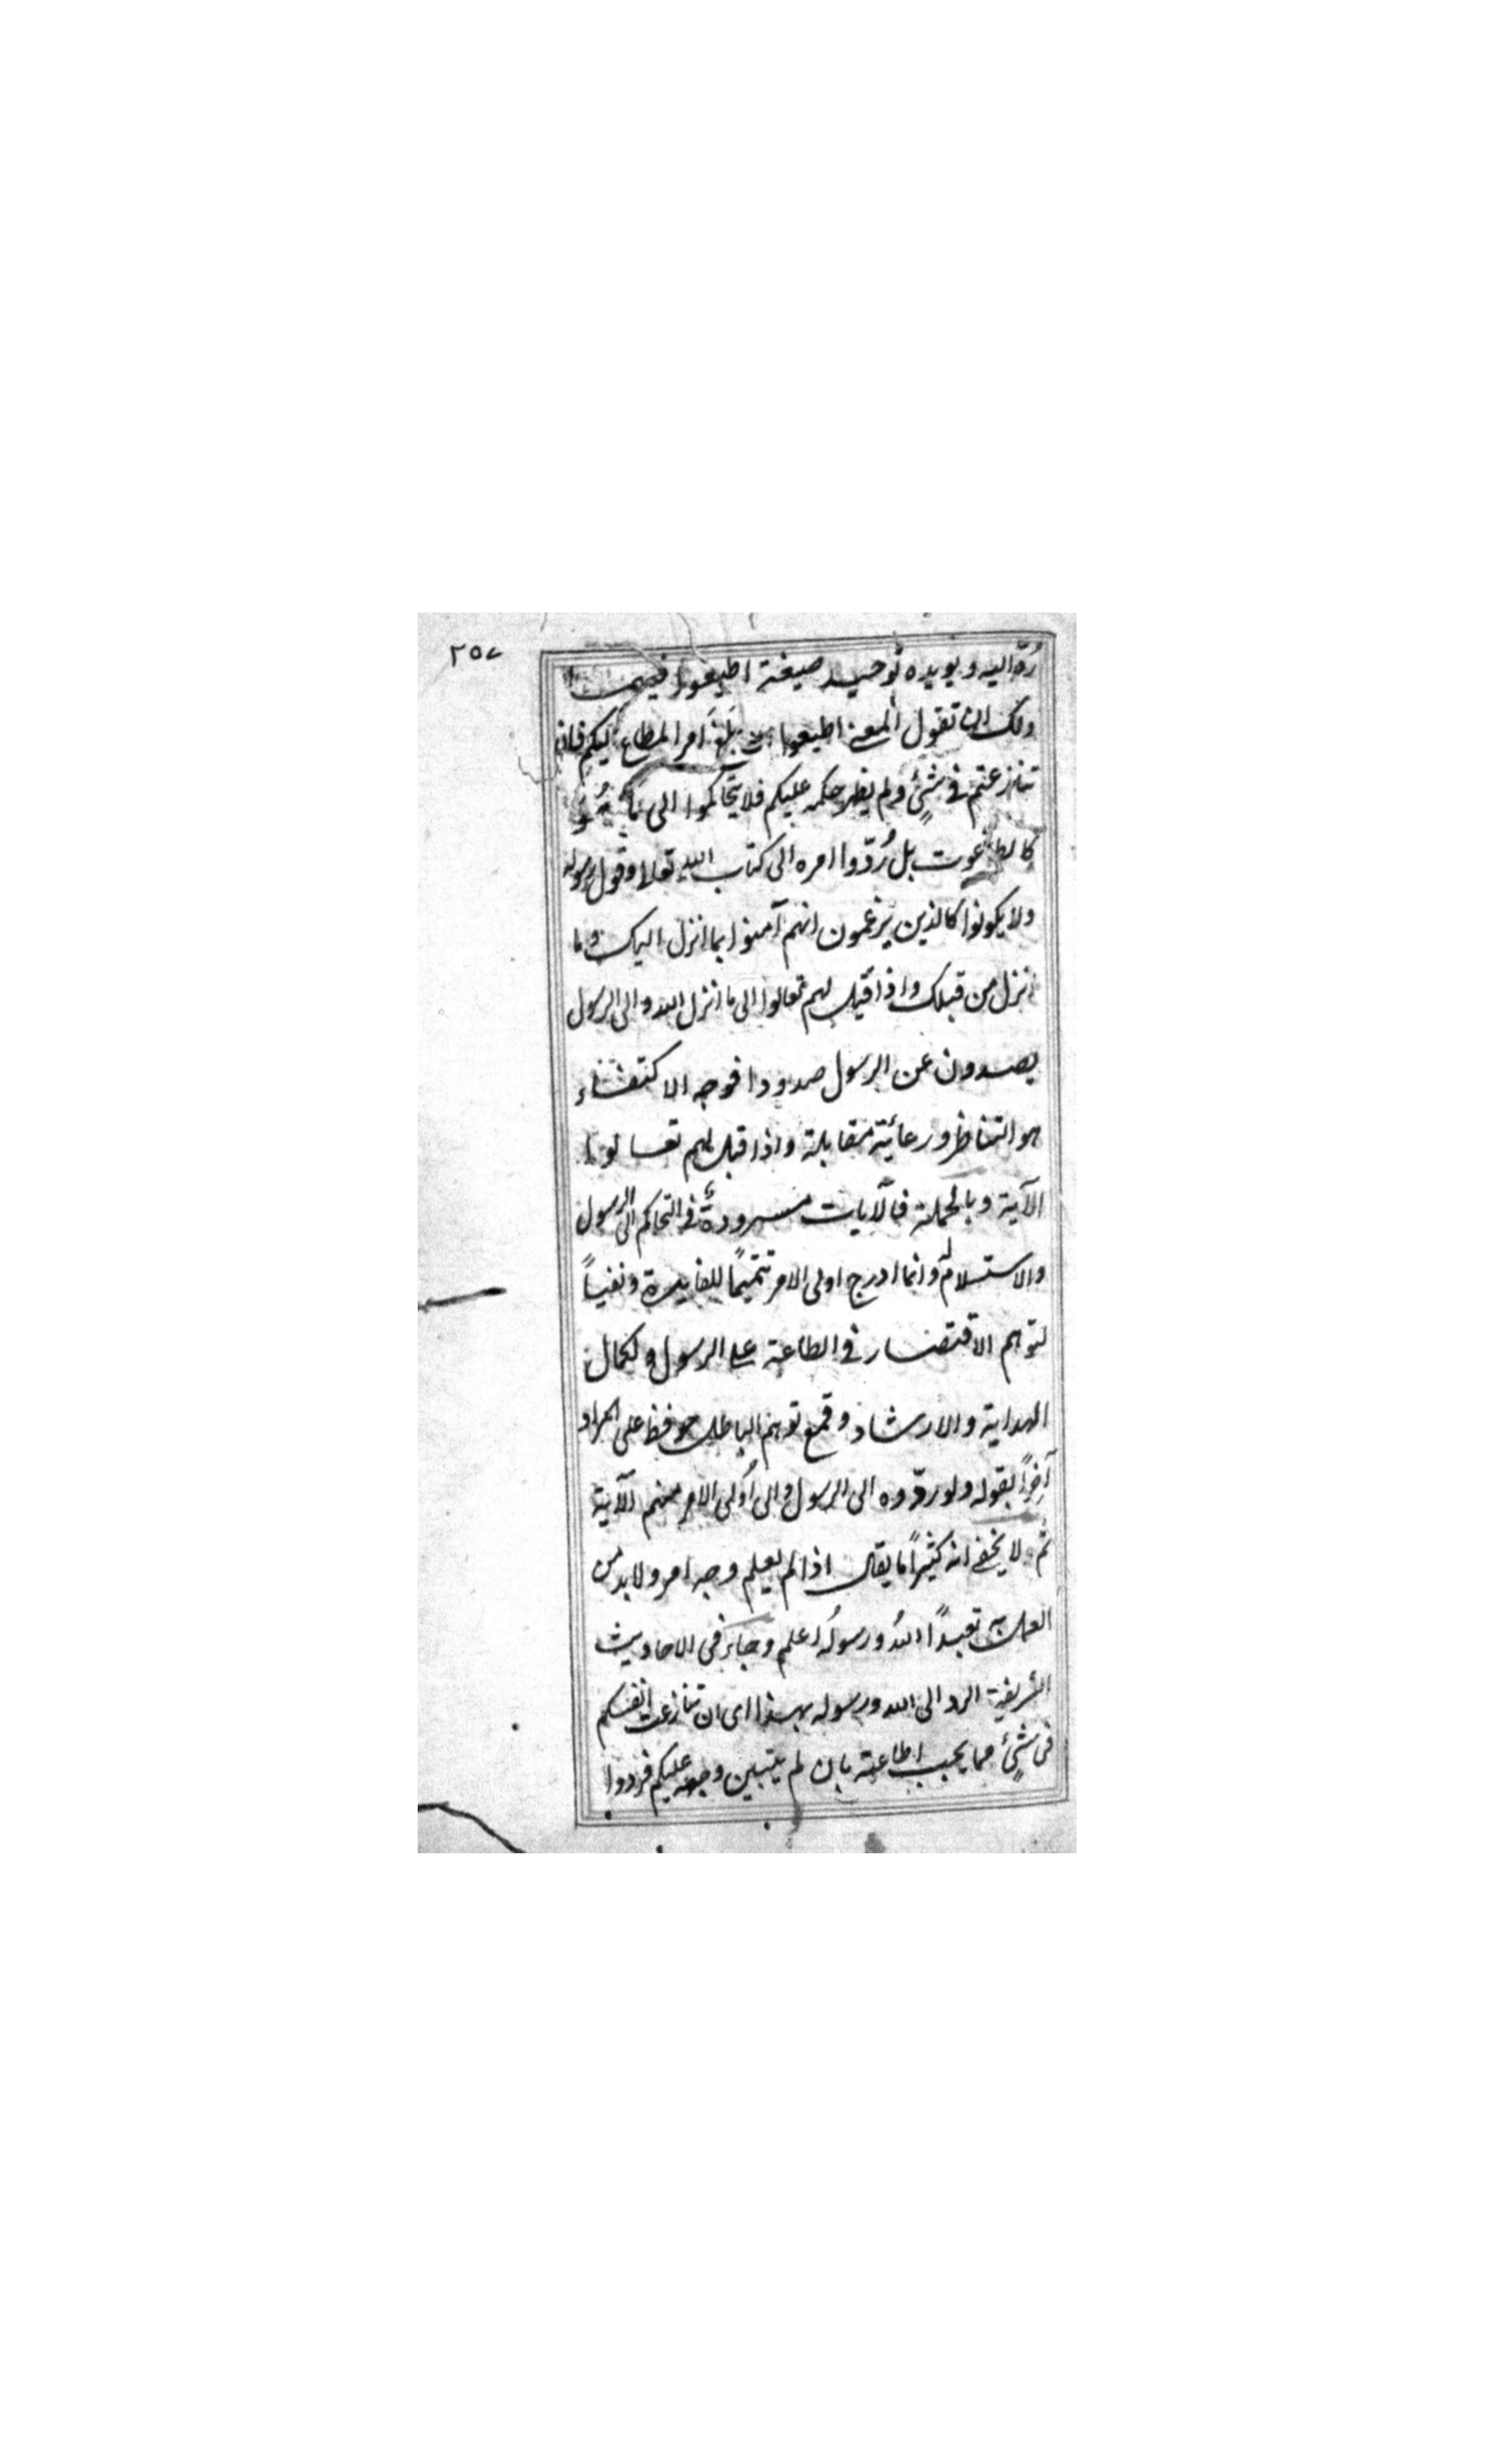 ٢٥٧
رُدّ اليه ويويده توحيد صيغة اطيعوا فيهما
ولك ان تقول المعنى اطيعوا بلغ امر المطاع اليكم فان
تنازعتم فى شئ ولم يظهر حكمه عليكم فلا يتحاكموا الى ما هو
كالطاغوت بل رُدّوا امره الى كتاب الله تعالى وقول رسوله
ولا يكونوا كالذين يزعمون انهم آمنوا بما انزل اليك وما
انزل من قبلك واذا قيل لهم تعالوا الى ما انزل الله والى الرسول
يصدون عن الرسول صدودا فوجه الاكتفاء
هو التناظر ورعاية مقابلة واذا قيل لهم تعالوا
الآية وبالجملة فالآيات مسرودةٌ فى التحاكم الى الرسول
والاستسلام له وانما ادرج اولى الامر تتميمًا للفايدة ونفياً
لتوهم الاقتصار فى الطاعة على الرسول ولكمال
الهداية والارشاد وقمع توهم الباطل حوفظ على المراد
آخراً بقوله ولو ردّوه الى الرسول والى اُولى الامر منهم الآية
ثم لا يخفى انه كثيراً ما يقال اذا لم يعلم وجه امر ولا بد من
العمل به تعبداً اللهُ ورسولُه اعلم وجائز فى الاحاديث
الشريفة الرد الى الله ورسوله بهذا اى ان تنازعت انفسكم
فى شئ مما يجب اطاعته بان لم يتبين وجهه عليكم فردوا